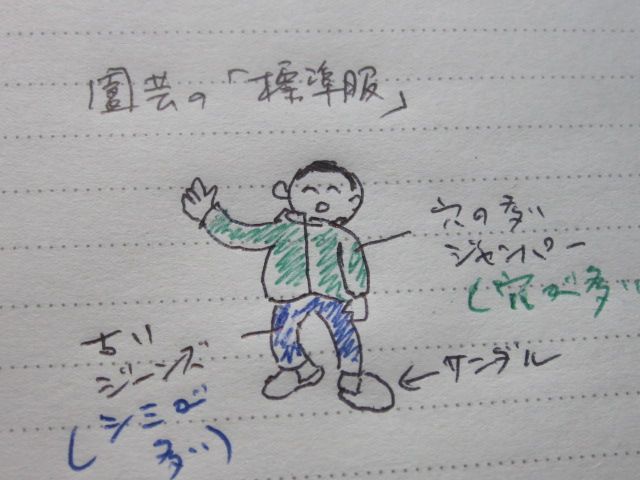 園芸の「標準服」
穴の多い
ジャンパー
(穴が多い
古い
ジーンズ
(シミが
多い)
サンダル